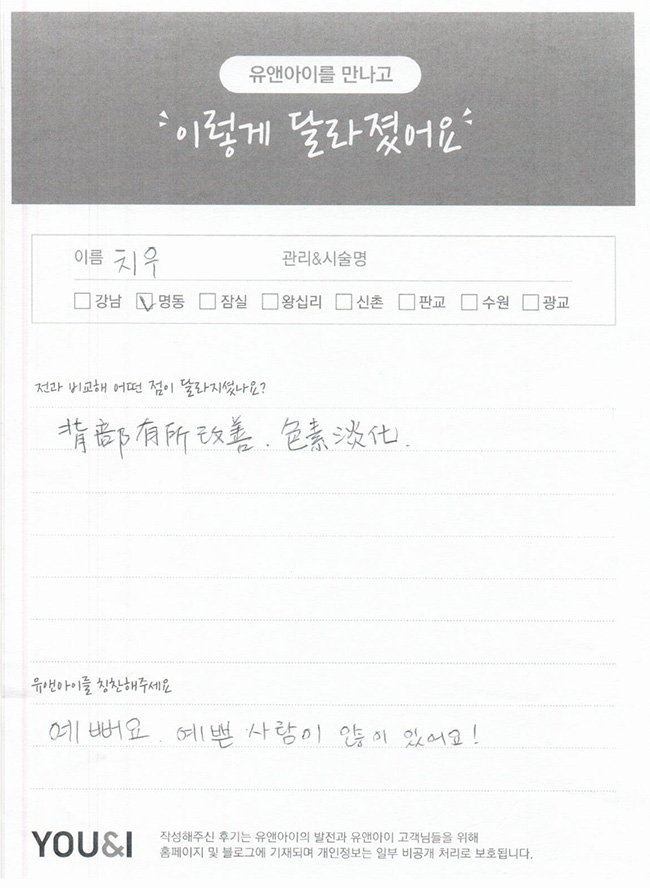 유앤아이를 만나고
이렇게 달라졌어요
이름 치우 관리&시술명
강남 명동 잠실 왕십리 신촌 판교 수원 광교
전과 비교해 어떤 점이 달라지셨나요?
背部有所改善. 色素淡化.
유앤아이를 칭찬해주세요
예뻐요. 예쁜 사람이 많이 있어요!
YOU&I
작성해주신 후기는 유앤아이의 발전과 유앤아이 고객님들을 위해
홈페이지 및 블로그에 기재되며 개인정보는 일부 비공개 처리로 보호됩니다.